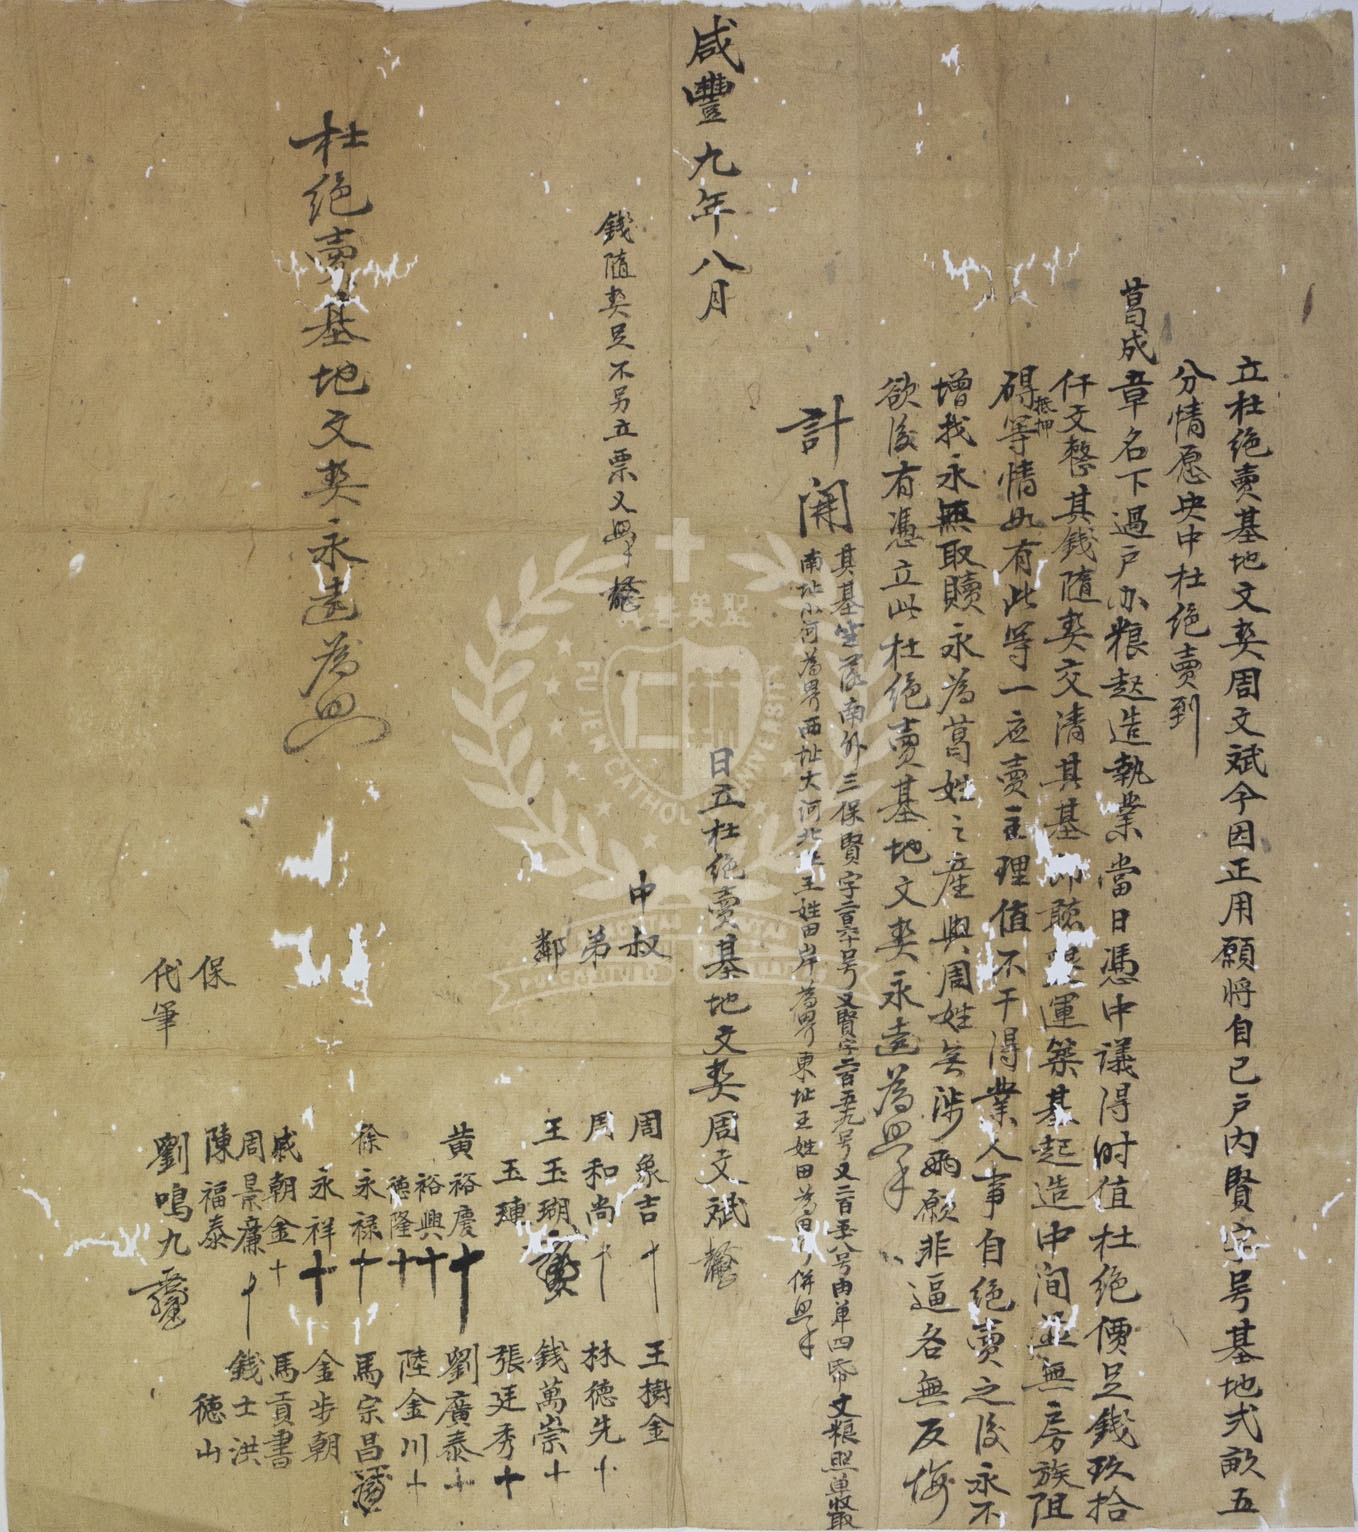 立杜绝賣基地文契周文斌今因正用願将自己户内賢字号基地弍畝五
分情愿央中杜绝賣到
葛成章名下過户办粮起造執業當日憑中議得时值杜绝價足錢玖拾
仟文整其錢隨契交清其基即聽運築基起造中间並無房族阻
碍抵押等情如有此等一应賣主理值不干得業人事自绝賣之後永不
增找永無取贖永為葛姓之產與周姓無涉兩願非逼各無反悔
欲後有憑立此杜绝賣基地文契永遠為照
計開
其基坐落南外三保賢字号又賢字二百五九号又二百五八号由单四帋丈粮照单收取
南址小河為界西址大河北址王姓田岸為界東址王姓田為界併照
咸豐九年八月 日立杜绝賣基地文契周文斌
錢隨契足不另立票又照十
中 叔 周象吉十 王樹金
弟 周和尚十 林德先十
鄰 王玉瑚 錢萬崇十
玉璉 張廷秀十
黄裕慶十 劉廣泰十
裕興十
德隆十 陸金川十
徐永禄十 馬宗昌
永祥十 金步朝
戚朝金十 馬貢書
周景廉十 錢士洪
保 陳福泰 德山
代筆 劉鳴九
杜绝賣基地文契永遠為照
聖美善真
FU JEN CATHOLIC UNIVERSITY